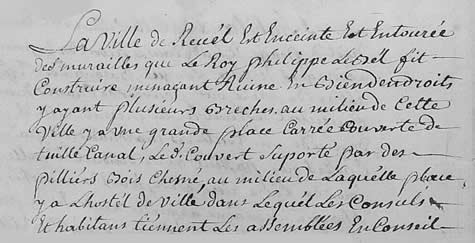 La Ville de Revél Est Enceinte Est Entourée
des murailles que Le Roy philippe Lebél fit
Construire menaçant Ruine En Biendendroits
y ayant plusieurs Breches. au milieu de Cette
Ville y a vne grande place Carrée Couverte de
tuille Canal, Le d. Couvert suporté par des
pilliers Bois Chesné, au milieu de Laquelle place
y a Lhostél de Ville dans Lequél Les Consuls
Et habitans tiennent Les assemblées En Conseil